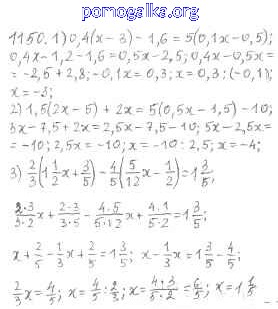 pomogalka.org
1150. 1) 0,4(x – 3) – 1,6 = 5(0,1x – 0,5);
0,4x – 1,2 – 1,6 = 0,5x – 2,5; 0,4x – 0,5x =
= –2,5 + 2,8; –0,1x = 0,3; x = 0,3 : (–0,1);
x = –3;
2) 1,5(2x – 5) + 2x = 5(0,5x – 1,5) – 10;
3x – 7,5 + 2x = 2,5x – 7,5 – 10; 5x – 2,5x =
= –10; 2,5x = –10; x = –10 : 2,5; x = –4;
3) 2/3(1 1/2x + 3/5) – 4/5(5/12x – 1/2) = 1 3/5;
2·3/3·2x + 2·3/3·5 – 4·5/5·12x + 4·1/5·2 = 1 3/5;
x + 2/5 – 1/3x + 2/5 = 1 3/5; x – 1/3x = 1 3/5 – 4/5;
2/3x = 4/5; x = 4/5 : 2/3; x = 4·3/5·2 = 6/5; x = 1 1/5